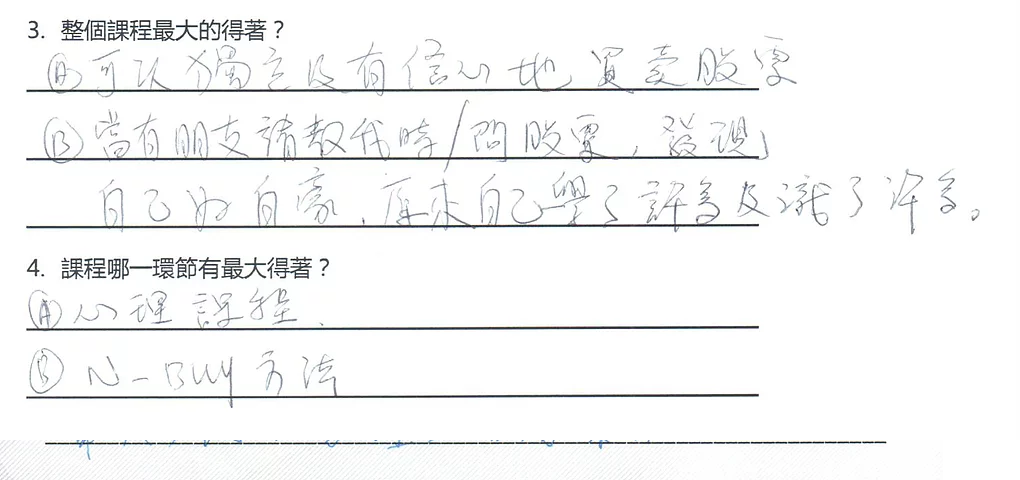 3. 整個課程最大的得著？
Ⓐ可以獨立及有信心地買賣股票
Ⓑ當有朋友請教我時/問股票，發現
自己好自豪，原來自己學了許多及識了許多。
4. 課程哪一環節有最大得著？
Ⓐ心理課程.
Ⓑ N-Buy方法